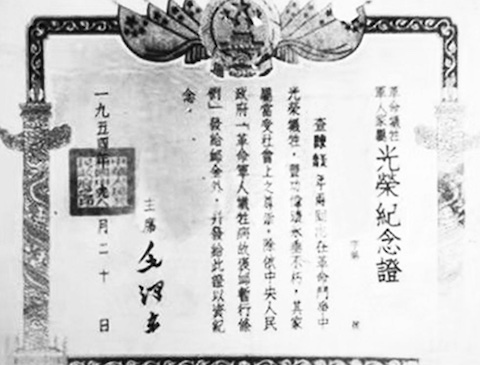 革命犧牲
軍人家屬
光榮紀念證
字第 號
查在革命鬥爭中
光榮犧牲,豐功偉績永垂不朽,其家
屬當受社會上之尊崇。除依中央人民
政府「革命軍人犧牲病故褒卹暫行條
例」發給卹金外,并發給此證以資紀
念。
主席 毛澤東
一九五四年月二十日